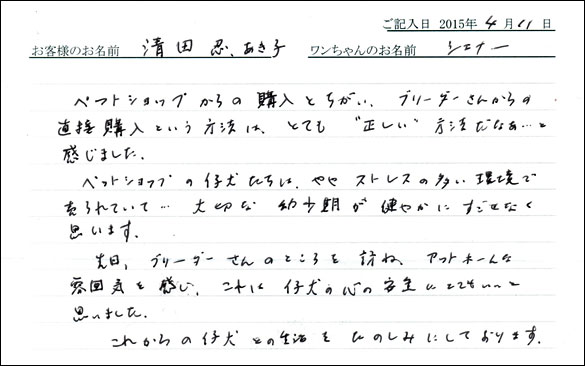 ご記入日 2015年 4 月 11 日
お客様のお名前 清田 忍、あき子 ワンちゃんのお名前 シエナー
ペットショップからの購入とちがい、ブリーダーさんからの
直接購入という方法は、とても "正しい" 方法だなぁ…と
感じました。
ペットショップの仔犬たちは、ややストレスの多い環境で
売られていて… 大切な幼少期が健やかにすごせなく
思います。
先日、ブリーダーさんのところを訪ね、アットホームな
雰囲気を感じ、これは仔犬の心の安全にとてもいいと
思いました。
これからの仔犬との生活をたのしみにしております。